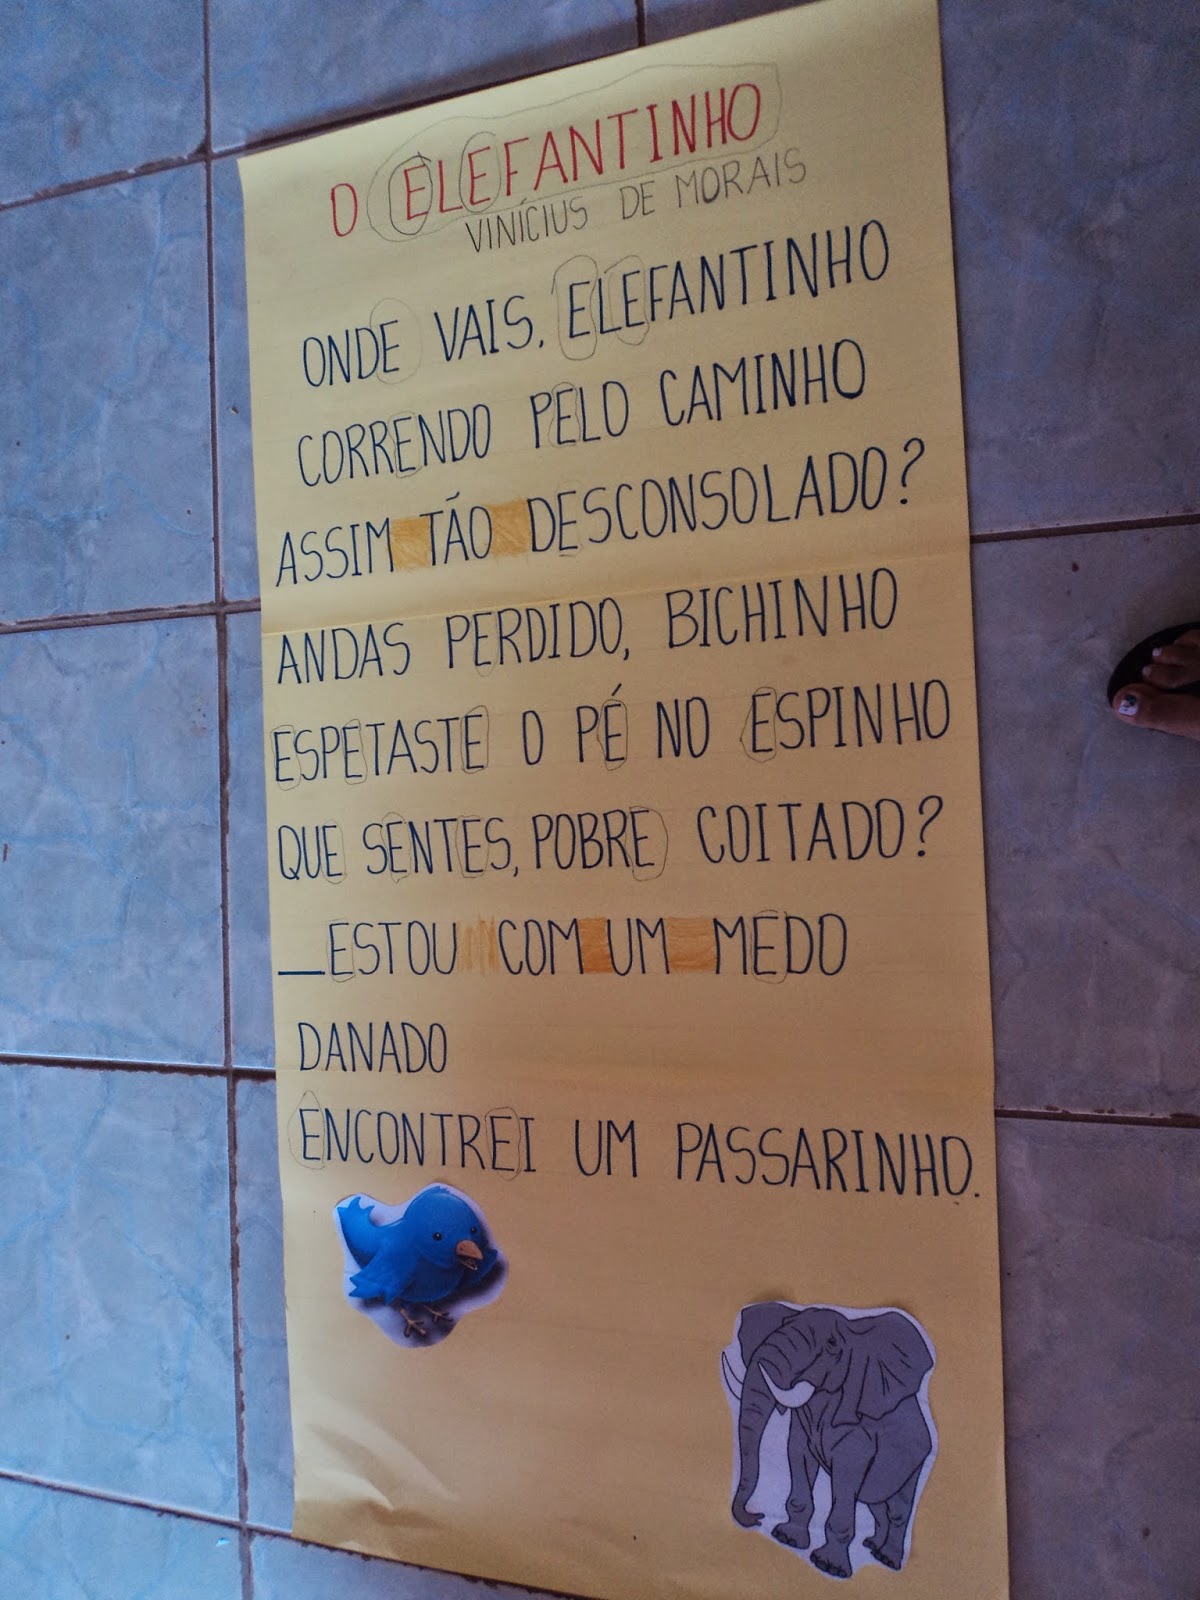 O ELEFANTINHO
VINÍCIUS DE MORAIS
ONDE VAIS, ELEFANTINHO
CORRENDO PELO CAMINHO
ASSIM TÃO DESCONSOLADO?
ANDAS PERDIDO, BICHINHO
ESPETASTE O PÉ NO ESPINHO
QUE SENTES, POBRE COITADO?
_ESTOU COM UM MEDO
DANADO
ENCONTREI UM PASSARINHO.